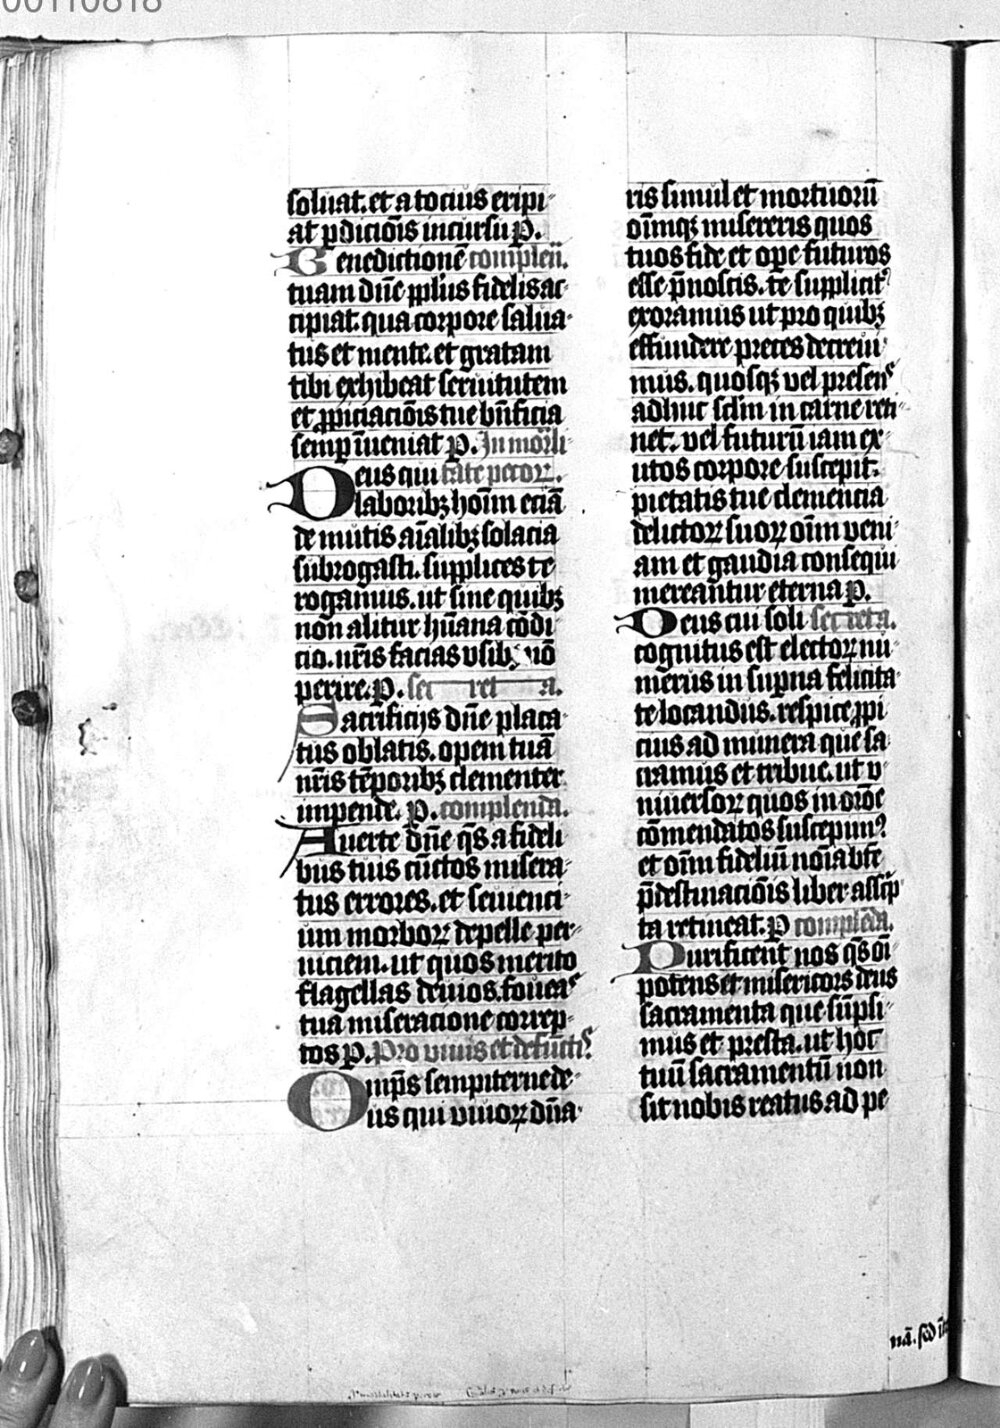 00110818
soluat. et a tocius eripi-
at ꝑdiciōīs incursu ꝑ.
Benedictionē complen̄.
tuam dn̄e pplīus fidelis ac-
cipiat. qua corpore salua-
tus et mente. et gratam
tibi exhibeat seruitutem
et ꝓpiciaciōīs tue bn̄ficia
semꝑ īueniat ꝑ. In mor̄li-
Deus qui tate pecoꝝ.
laboribꝫ hoīm eciā
de mutis aīalibꝫ solacia
subrogasti. supplices te
rogamus. ut sine quibꝫ
non alitur hūana cōdi-
cio. nr̄is facias vsibꝫ nō
perire. ꝑ. secreta.
Sacrificijs dn̄e placa-
tus oblatis. opem tuā
nr̄is tēporibꝫ clementer
impende. ꝑ. complenda.
Auerte dn̄e q̄s a fideli
bus tuis cūctos misera-
tus errores. et seuienci-
um morboꝝ depelle per-
niciem. ut quos merito
flagellas deuios. foueas
tua miseracione correp-
tos ꝑ. Pro viuis et defūctis
Omp̄s sempiterne de-
us qui viuoꝝ dn̄a-
ris simul et mortuorū
oīmqꝫ misereris quos
tuos fide et oꝑe futuros
esse p̄noscis. te supplicit͛
exoramus ut pro quibꝫ
effundere preces decreui-
mus. quosqꝫ vel presens
adhuc sclm̄ in carne reti-
net. vel futurū iam ex-
utos corpore suscepit.
pietatis tue clemencia
delictoꝝ suoꝝ oīm veni-
am et gaudia consequi
mereantur eterna ꝑ.
Deus cui soli secreta.
cognitus est electoꝝ nu-
merus in suꝑna felicita-
te locandus. respice ꝓpi
cius ad munera que sa-
cramus et tribue. ut v-
niuersoꝝ quos in orōe
cōmendatos suscepim᷒
et oīm fideliū noīa bt̄e
p̄destinaciōīs liber assc̄p
ta retineat. ꝑ complēda.
Purificent nos q̄s oī-
potens et misericors deus
sacramenta que sūpsi-
mus et presta. ut hoc
tuū sacramentū non
sit nobis reatus ad pe
nā. sed īt